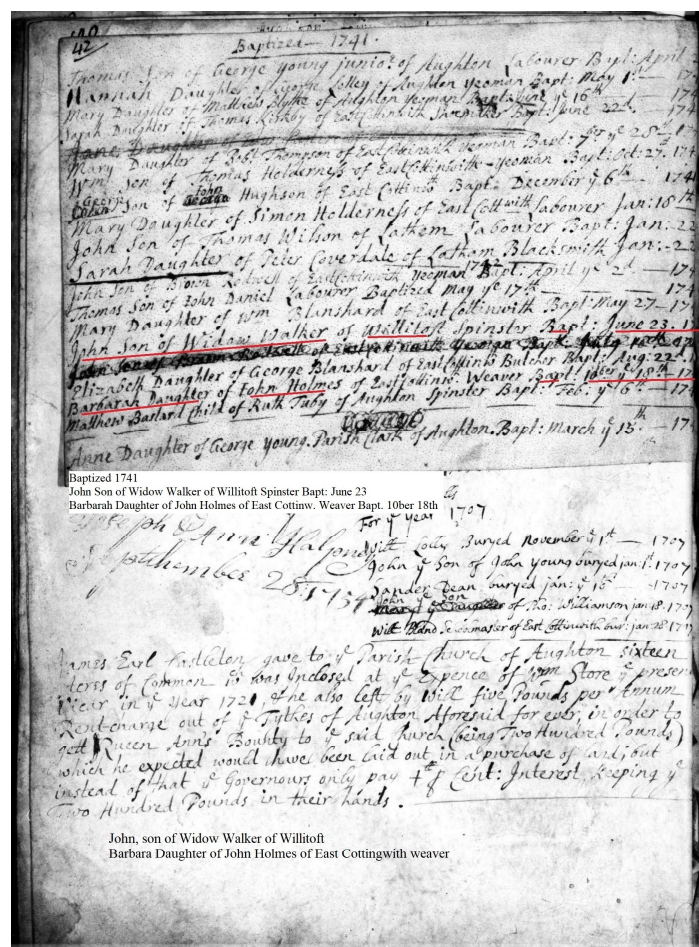 42
Baptized — 1741.
Thomas Son of George young junior of Aughton Labourer Bapt: April
Hannah Daughter of George Yolley of Aughton yeoman Bapt: May 1st — 17
Mary Daughter of Matthew Blythe of Aughton yeoman Bapt: June ye 16th — 17
Sarah Daughter of Thomas Kirkby of East Cottinwith Bapt: June 22d. 17
Jane Daughter
Mary Daughter of Robt Thompson of East Cottinwith yeoman Bapt: 7ber ye 28th
Wm. Son of Thomas Holderness of East Cottinwith yeoman Bapt: Oct: 27. 174
George Son of John Hughson of East Cottinwth Bapt: December ye 6th — 174
Mary Daughter of Simon Holderness of East Cottwith Labourer Jan: 18th
John Son of Thomas Wilson of Lathom Labourer Bapt: Jan: 22
Sarah Daughter of Peter Coverdale of Latham Blacksmith Jan: 2
1742
John Son of Brown Rotwell of East Cottinwith yeoman Bapt: April ye 2d. — 17
Thomas Son of John Daniel Labourer Baptized May ye 17th — 174
Mary Daughter of Wm Blanshard of East Cottinwith Bapt: May 27 — 17
John Son of Widow Walker of Willitoft Spinster Bap: June 23: 1
Elizabeth Daughter of George Blanshard of East Cottinw: Butcher Bapt: Aug: 22d
Barbarah Daughter of John Holmes of East Cottinw: Weaver Bapt: 10ber ye 18th — 17
Matthew Bastard Child of Ruth Tuby of Aughton Spinster Bapt: Feb: ye 6th — 17
Anne Daughter of George young. Parish Clark of Aughton. Bapt: March ye 13th — 17
Baptized 1741
John Son of Widow Walker of Willitoft Spinster Bapt: June 23
Barbarah Daughter of John Holmes of East Cottinw. Weaver Bapt. 10ber 18th
Joseph & Ann Halpeny
Septhember 28th 1754
For ye year 1707
Will Lolly Buryed November ye 1st — 1707
John ye Son of John young buryed jan: 1st. 1707
Sander Dean buryed jan: ye 16th — 1707
John ye Son of Tho: Williamson jan: 18. 1707
Will Bland Scoolmaster of East Cottinwith bur: jan: 28 1707
James Earl Castleton gave to ye Parish Church of Aughton sixteen
Acres of Common wch was Inclosed at ye Expence of Wm Store ye present
Vicar in ye year 1721, & he also left by Will five Pounds per Annum
Rent-charge out of ye Tythes of Aughton Aforesaid for ever, in order to
gett Queen Ann's Bounty to ye said Church (being Two Hundred Pounds)
which he expected would have been laid out in a purchase of land; but
instead of that ye Governours only pay 4 p Cent: Interest, keeping ye
Two Hundred Pounds in their hands.
John, son of Widow Walker of Willitoft
Barbara Daughter of John Holmes of East Cottingwith weaver